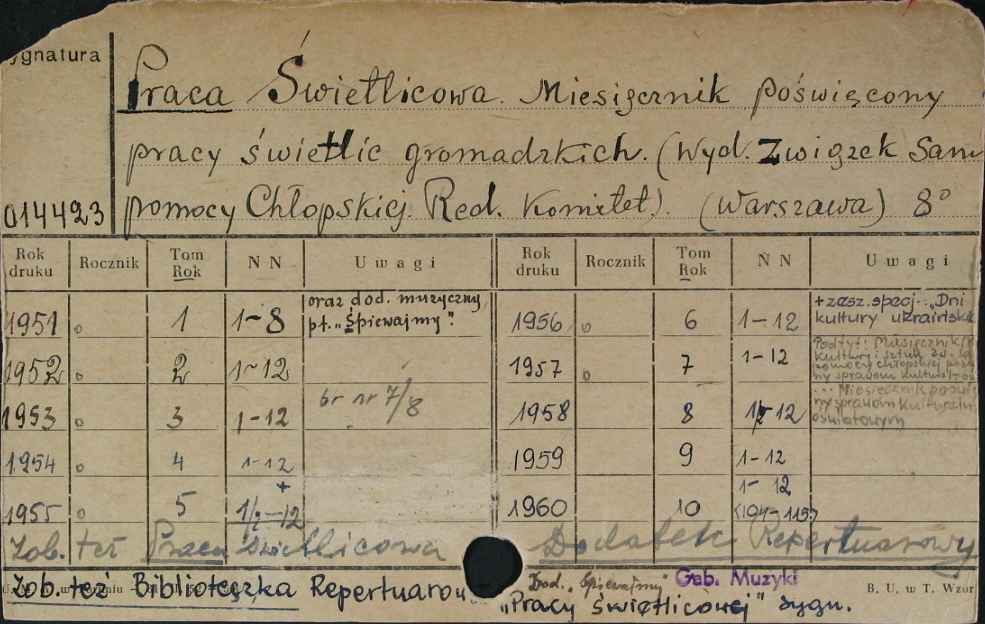 ygnatura
Praca Świetlicowa. Miesięcznik poświęcony
pracy świetlic gromadzkich. (Wyd. Związek Sam
014423 pomocy Chłopskiej. Red. Komitet). (Warszawa) 8°
Rok druku Rocznik Tom Rok N N Uwagi Rok druku Rocznik Tom Rok N N Uwagi
1951 o 1 1-8 oraz dod. muzyczny pt. „Śpiewajmy". 1956 o 6 1-12 + zesz. specj. „Dni kultury ukraińskie
1952 o 2 1-12 1957 o 7 1-12 Podtyt: Miesięcznik kultury i sztuki
1953 o 3 1-12 br nr 7/8 1958 8 1-12 ... Miesięcznik sprawom kulturaln oświatowym
1954 o 4 1-12 1959 9 1-12
1955 o 5 1/2-12 + 1960 10 1-12
Zob. też Praca Świetlicowa Dodatek Repertuarowy
Zob. też Biblioteczka Repertuarow Dod. „Śpiewajmy" Gab. Muzyki
„Pracy świetlicowej" sygn.
B. U. w T. Wzor